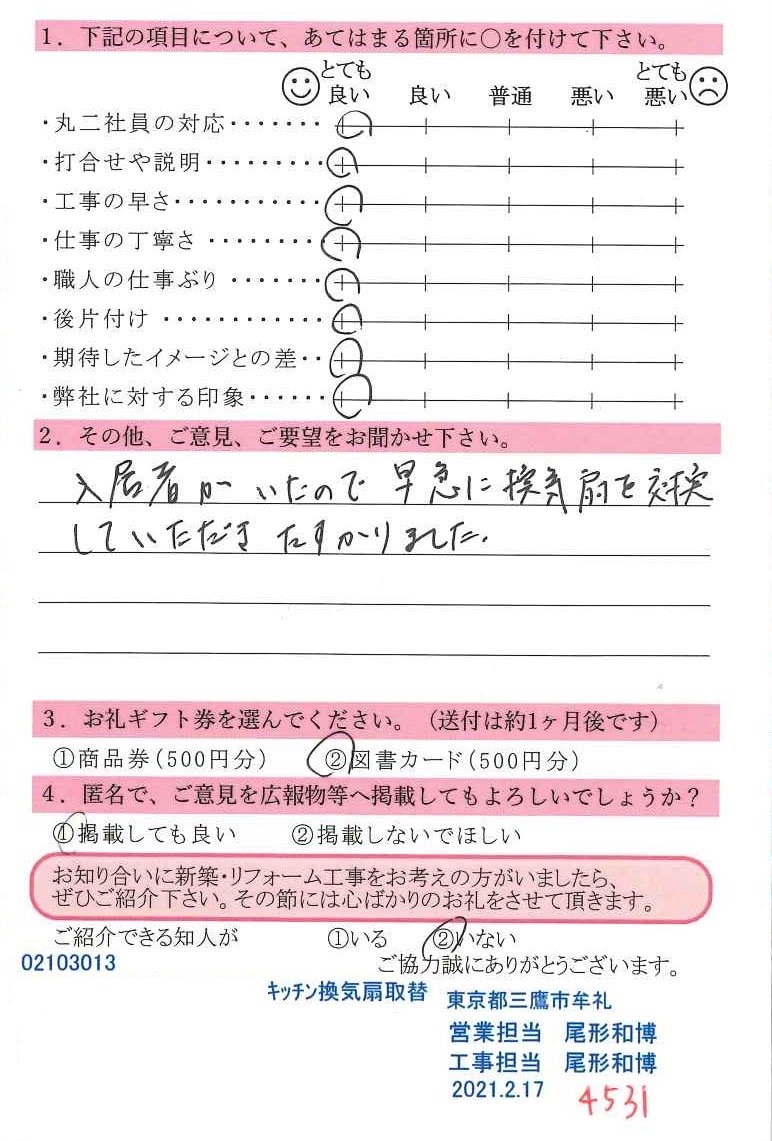 1．下記の項目について、あてはまる箇所に○を付けて下さい。
とても良い 良い 普通 悪い とても悪い
・丸二社員の対応・・・・・・・
・打合せや説明・・・・・・・・・
・工事の早さ・・・・・・・・・・・
・仕事の丁寧さ・・・・・・・・
・職人の仕事ぶり・・・・・・・
・後片付け・・・・・・・・・・・・
・期待したイメージとの差・・
・弊社に対する印象・・・・・・
2．その他、ご意見、ご要望をお聞かせ下さい。
入居者がいたので早急に換気扇を交換
していただきたすかりました.
3．お礼ギフト券を選んでください。（送付は約1ヶ月後です）
①商品券(500円分) ②図書カード(500円分)
4．匿名で、ご意見を広報物等へ掲載してもよろしいでしょうか？
①掲載しても良い ②掲載しないでほしい
お知り合いに新築・リフォーム工事をお考えの方がいましたら、
ぜひご紹介下さい。その節には心ばかりのお礼をさせて頂きます。
ご紹介できる知人が ①いる ②いない
02103013 ご協力誠にありがとうございます。
キッチン換気扇取替 東京都三鷹市牟礼
営業担当 尾形和博
工事担当 尾形和博
2021.2.17 4531